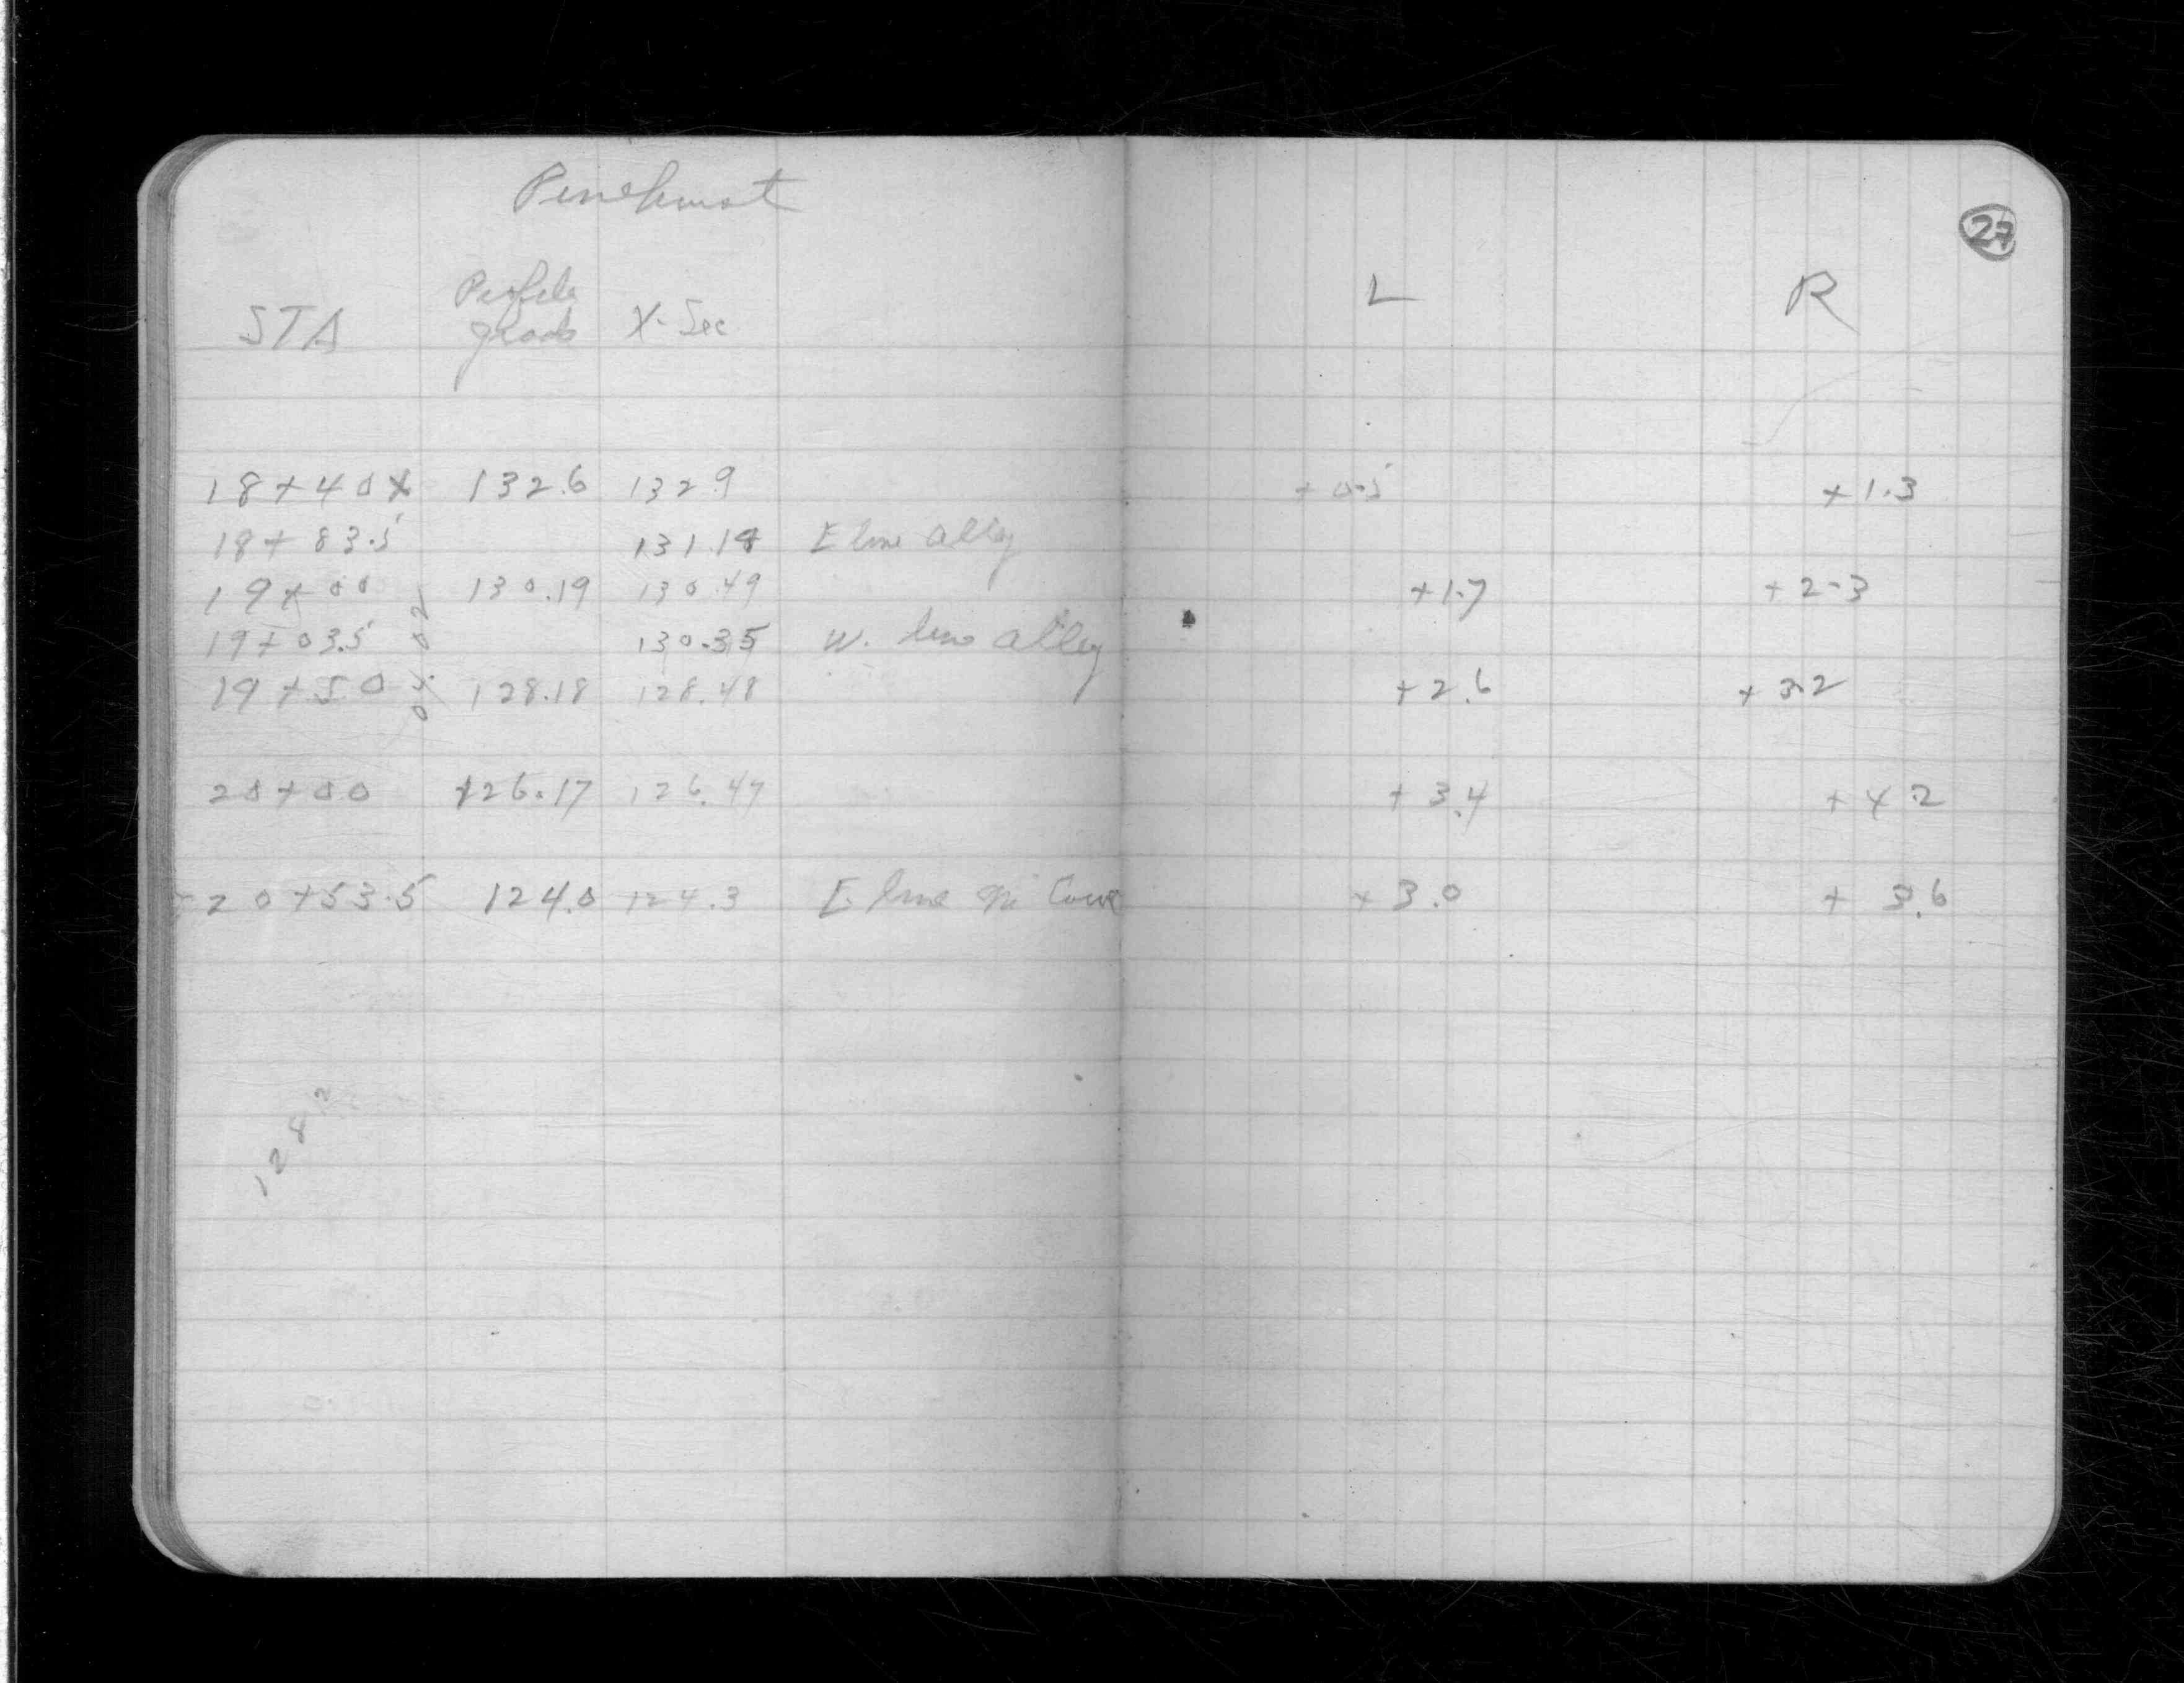 Pinehurst
27
STA Profile grade X-Sec L R
18+40 132.6 132.9 +0.5 +1.3
18+83.5 131.19 E line alley
19+00 130.19 130.49 +1.7 +2.3
19+03.5 130.35 W. line alley
19+50 128.18 128.48 +2.6 +3.2
20+00 126.17 126.47 +3.4 +4.2
20+53.5 124.0 124.3 E. line +3.0 +3.6
128